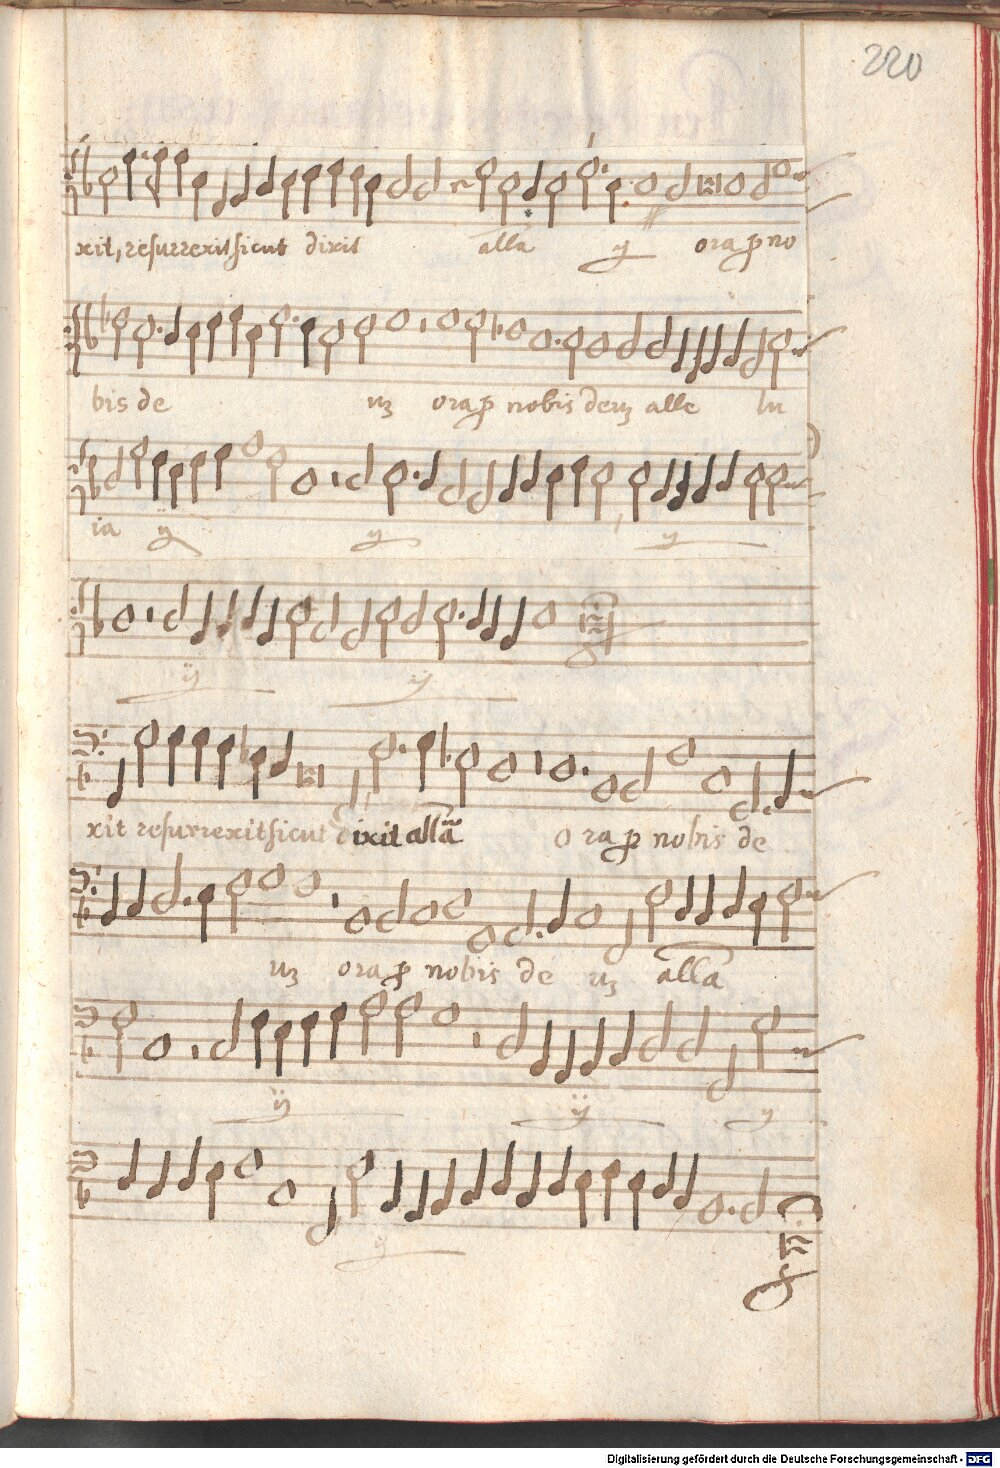 220
xit, resurrexit sicut dixit alla ij ora p no
bis de um ora p nobis deum alle lu
ia ij ij ij
ij ij
xit resurrexit sicut dixit alla o ra p nobis de
um ora p nobis de um alla
ij ij ij
ij
Digitalisierung gefördert durch die Deutsche Forschungsgemeinschaft - DFG